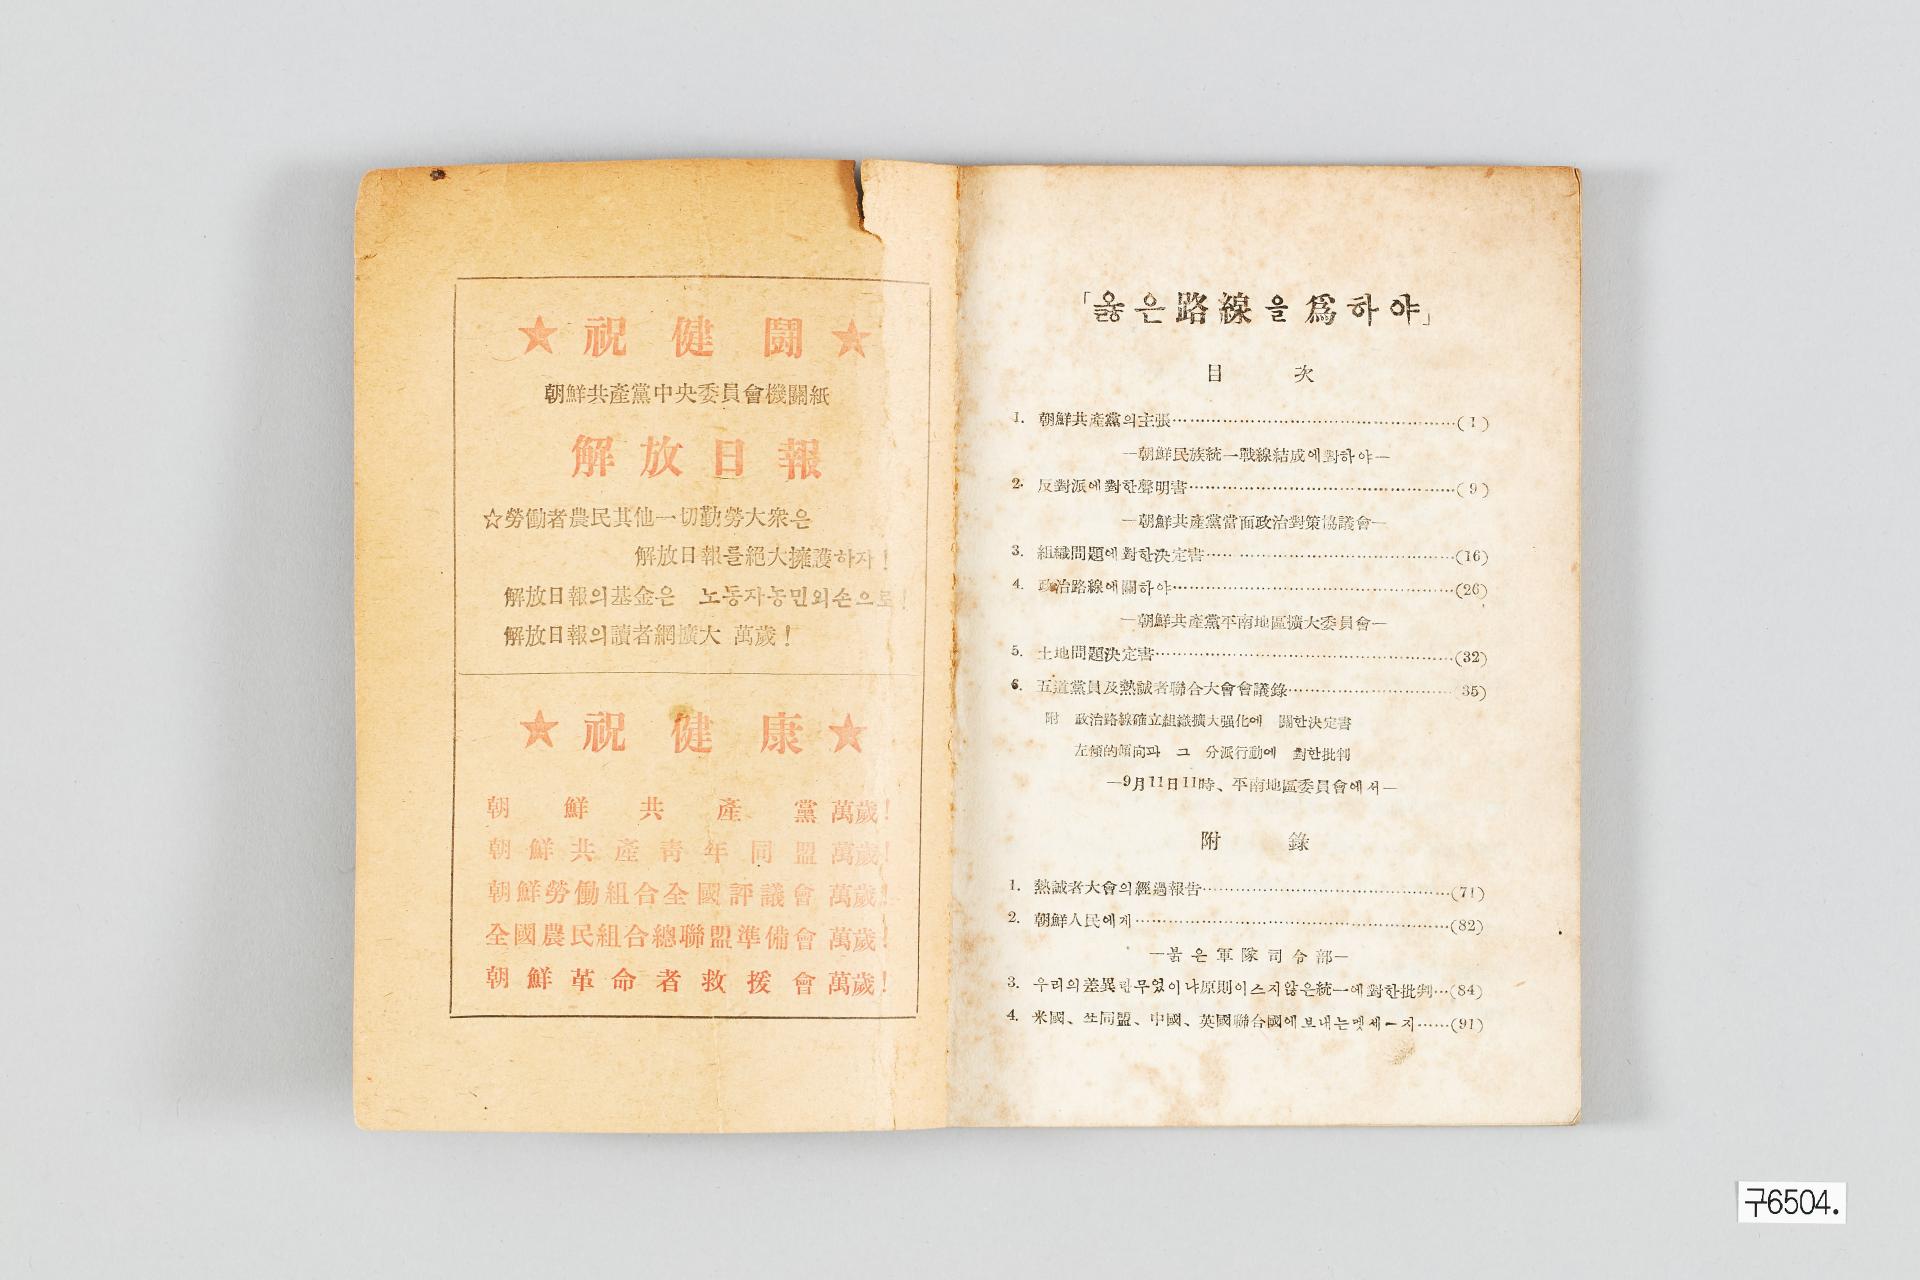 ★ 祝健鬪 ★
朝鮮共產黨中央委員會機關紙
解放日報
☆勞働者農民其他一切勤勞大衆은
解放日報를絕大擁護하자!
解放日報의基金은 노동자농민의손으로!
解放日報의讀者網擴大 萬歲!
★ 祝健康 ★
朝鮮共產黨 萬歲!
朝鮮共產靑年同盟 萬歲!
朝鮮勞働組合全國評議會 萬歲!
全國農民組合總聯盟準備會 萬歲!
朝鮮革命者救援會 萬歲!
「옳은路線을爲하야」
目次
1. 朝鮮共產黨의主張……(1)
—朝鮮民族統一戰線結成에對하야—
2. 反對派에對한聲明書……(9)
—朝鮮共產黨當面政治對策協議會—
3. 組織問題에對한決定書……(16)
4. 政治路線에關하야……(26)
—朝鮮共產黨平南地區擴大委員會—
5. 土地問題決定書……(32)
6. 五道黨員及熱誠者聯合大會會議錄……35)
附 政治路線確立組織擴大强化에 關한決定書
左傾的傾向과 그 分派行動에 對한批判
—9月11日11時、平南地區委員會에서—
附錄
1. 熱誠者大會의經過報告……(71)
2. 朝鮮人民에게……(82)
—붉은軍隊司令部—
3. 우리의差異란무엇이냐原則이스지않은統一에對한批判…(84)
4. 米國、쏘同盟、中國、英國聯合國에보내는멧세ー지……(91)
구6504.